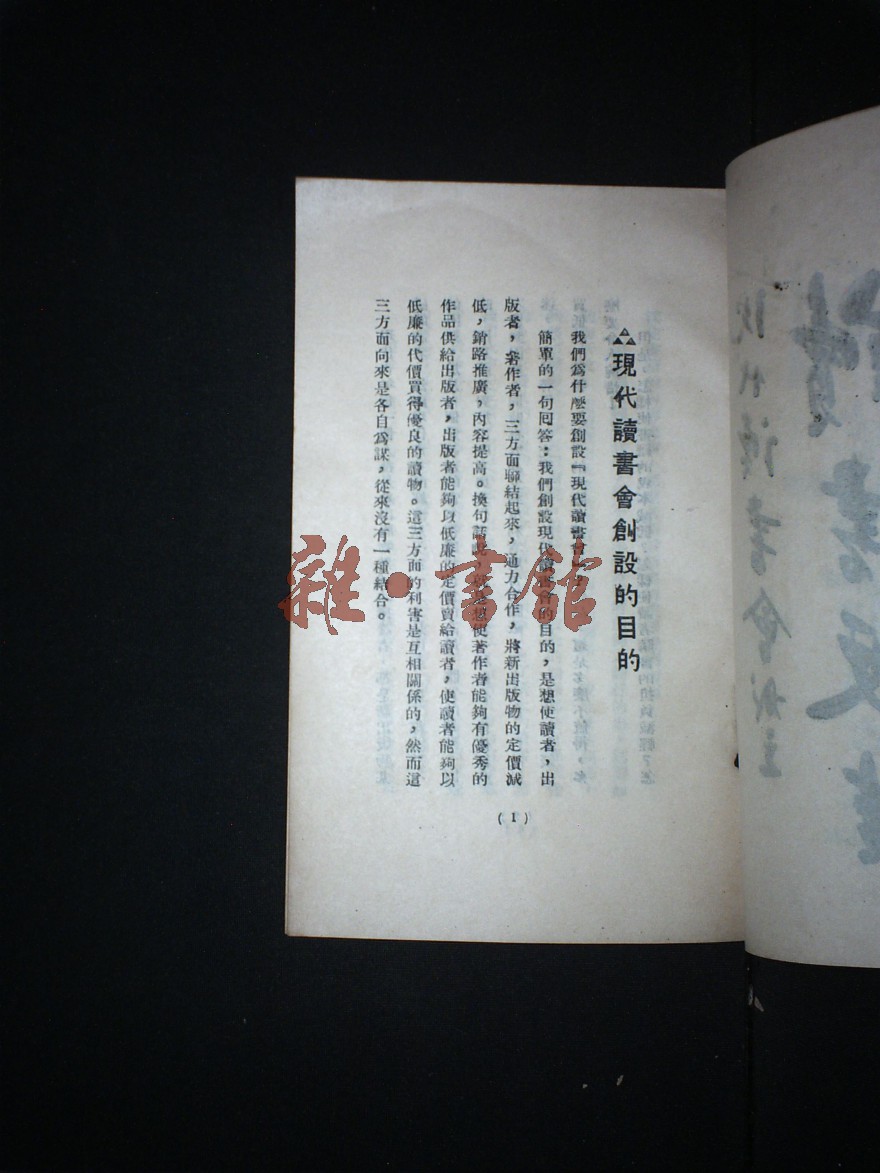 現代讀書會創設的目的
我們爲什麽要創設「現代讀書會」
簡單的一句囘答：我們創設現代讀書會的目的，是想使讀者，出
版者，著作者，三方面聯結起來，通力合作，將新出版物的定價減
低，銷路推廣，內容提高。換句話說，就是想使著作者能夠有優秀的
作品供給出版者，出版者能夠以低廉的定價賣給讀者，使讀者能夠以
低廉的代價買得優良的讀物。這三方面的利害是互相關係的，然而這
三方面向來是各自爲謀，從來沒有一種結合。
(1)
雜·書館